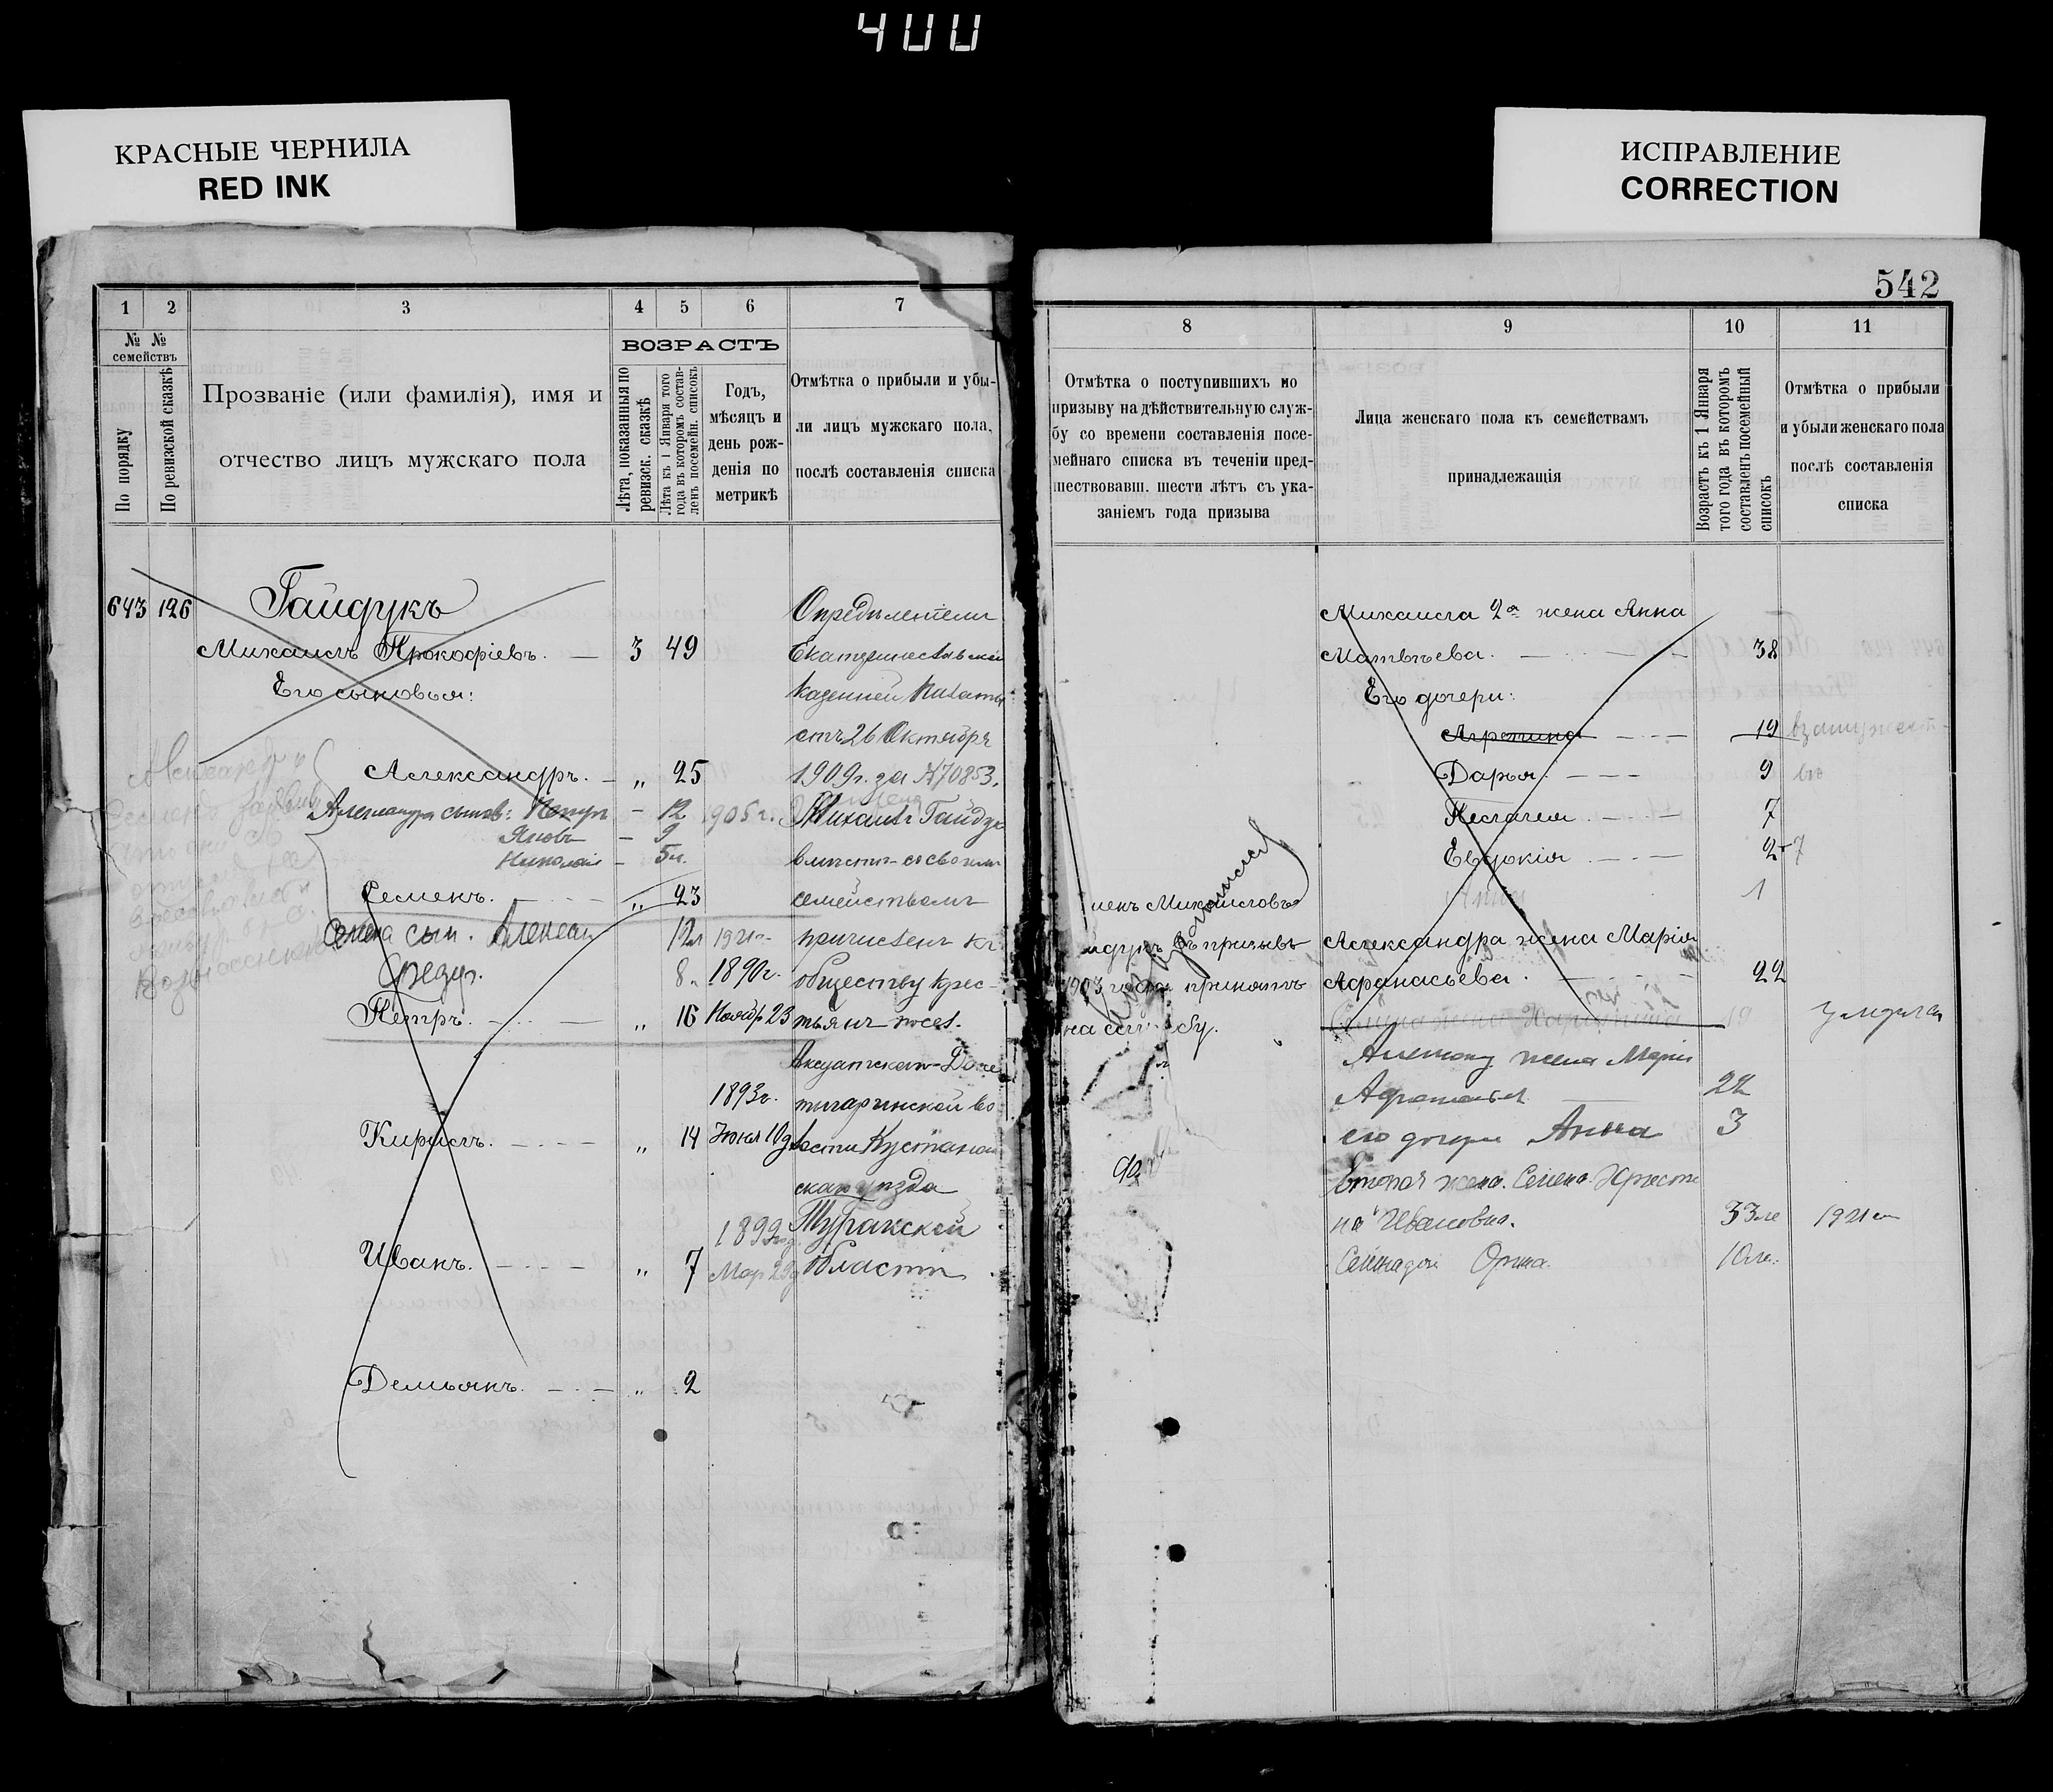 400
КРАСНЫЕ ЧЕРНИЛА
RED INK
ИСПРАВЛЕНИЕ
CORRECTION
1 2 3 4 5 6 7
№ № семействъ
По порядку
По ревизской сказкѣ
Прозваніе (или фамилія), имя и
отчество лицъ мужскаго пола
ВОЗРАСТЪ
Лѣта, показанныя по
ревизск. сказкѣ
Лѣта къ 1 Января того
года въ которомъ состав-
ленъ посемейн. списокъ
Годъ,
мѣсяцъ и
день рож-
денія по
метрикѣ
Отмѣтка о прибыли и убы-
ли лицъ мужскаго пола,
послѣ составленія списка
643 126 Гайдукъ
Михаилъ Прокофіевъ. 3 49
Его сыновья:
Александръ. „ 25
Александра сынов: Петръ 12 1905 г.
Яковъ 9
Николай 5 л.
Семенъ. „ 23
Семена сын. Алексан 12 л 1921 г.
Федр. 8 „ 1890 г.
Петръ. „ 16 Ноябр 23
1893 г.
Кирилъ. „ 14 Іюня 10 д
1899 год
Иванъ. „ 7 Мар 29 д
Демьянъ. „ 2
Опредѣленіемъ
Екатеринославской
Казенной Палаты
отъ 26 Октября
1909 г. за № 70853.
Михаилъ Гайдук
вмѣстѣ съ своимъ
семействомъ
причисленъ къ
обществу крес-
тьянъ посел.
Аксуатскаго Дам
тигаринской во
лости Кустанай
скаго уѣзда
Тургайской
Области
542
8 9 10 11
Отмѣтка о поступившихъ по
призыву на дѣйствительную служ-
бу со времени составленія посе-
мейнаго списка въ теченіи пред-
шествовавш. шести лѣтъ съ ука-
заніемъ года призыва
Лица женскаго пола къ семействамъ
принадлежащія
Возрастъ къ 1 Января
того года въ которомъ
составленъ посемейный
списокъ
Отмѣтка о прибыли
и убыли женскаго пола
послѣ составленія
списка
менъ Михаиловъ
йдукъ въ призывъ
1903 года принятъ
на службу.
Михаила 2я жена Анна
Матвѣева. 38
Его дочери:
Агрипина 19 взамужест-
Дарья. 9 во
Пелагея 7
Евдокія 2 7
Анна 1
Александра жена Марія
Афанасьева. 22
Семена жена 19 умерла
жена Марія
Афанасьев 22
его дочери Анна 3
Вторая жена Семена Христи
на Ивановна. 33 ле 1921 г
дочь Орина. 10 ле.